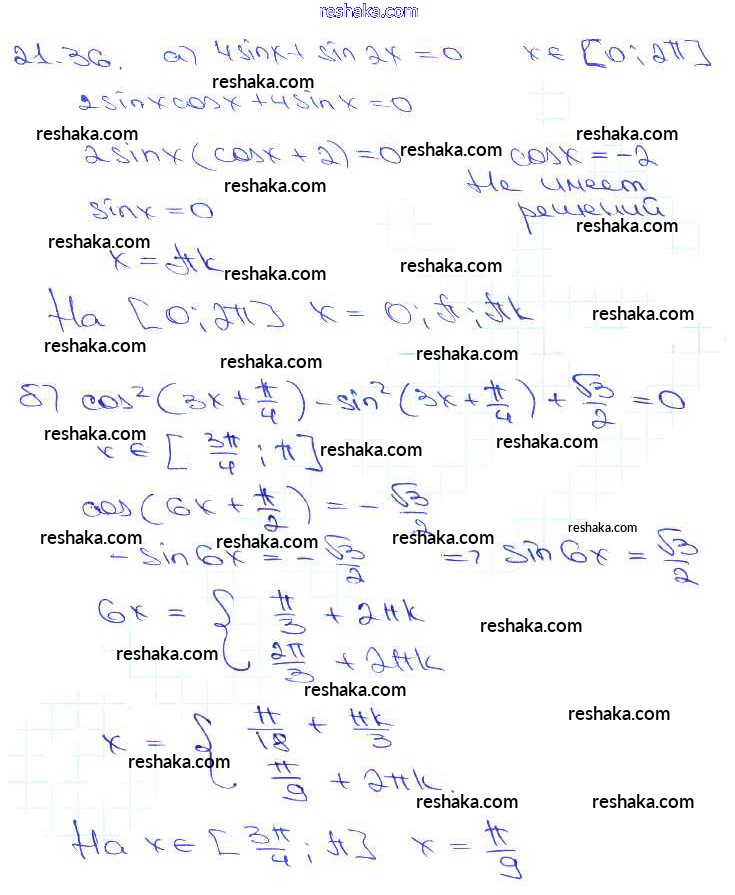 reshaka.com
21.36. а) 4sinx + sin2x = 0 x ∈ [0; 2π]
reshaka.com
2sinxcosx + 4sinx = 0
reshaka.com reshaka.com
2sinx(cosx + 2) = 0 reshaka.com cosx = -2
reshaka.com Не имеет
sinx = 0 решений
reshaka.com reshaka.com
x = πk reshaka.com reshaka.com
На [0; 2π] x = 0; π; πk reshaka.com
reshaka.com reshaka.com reshaka.com
б) cos²(3x + π/4) - sin²(3x + π/4) + √3/2 = 0
reshaka.com reshaka.com
x ∈ [3π/4; π] reshaka.com
cos(6x + π/2) = -√3/2
reshaka.com reshaka.com reshaka.com reshaka.com
-sin6x = -√3/2 => sin6x = √3/2
6x = { π/3 + 2πk
reshaka.com
2π/3 + 2πk
reshaka.com
reshaka.com
x = { π/18 + πk/3
reshaka.com
reshaka.com
π/9 + 2πk.
reshaka.com reshaka.com
На x ∈ [3π/4; π] x = π/9